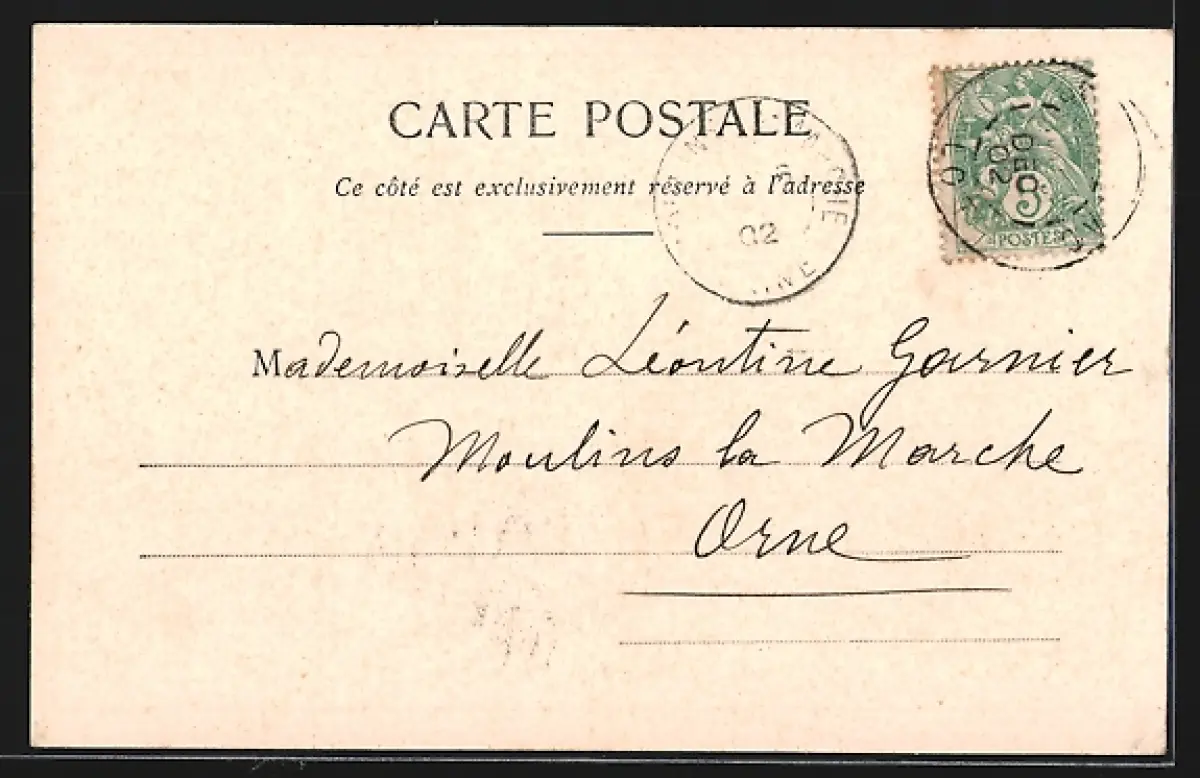 CARTE POSTALE
Ce côté est exclusivement réservé à l'adresse
02
DEC
02
5
POSTES
Mademoiselle Léontine Garnier
Moulins la Marche
Orne